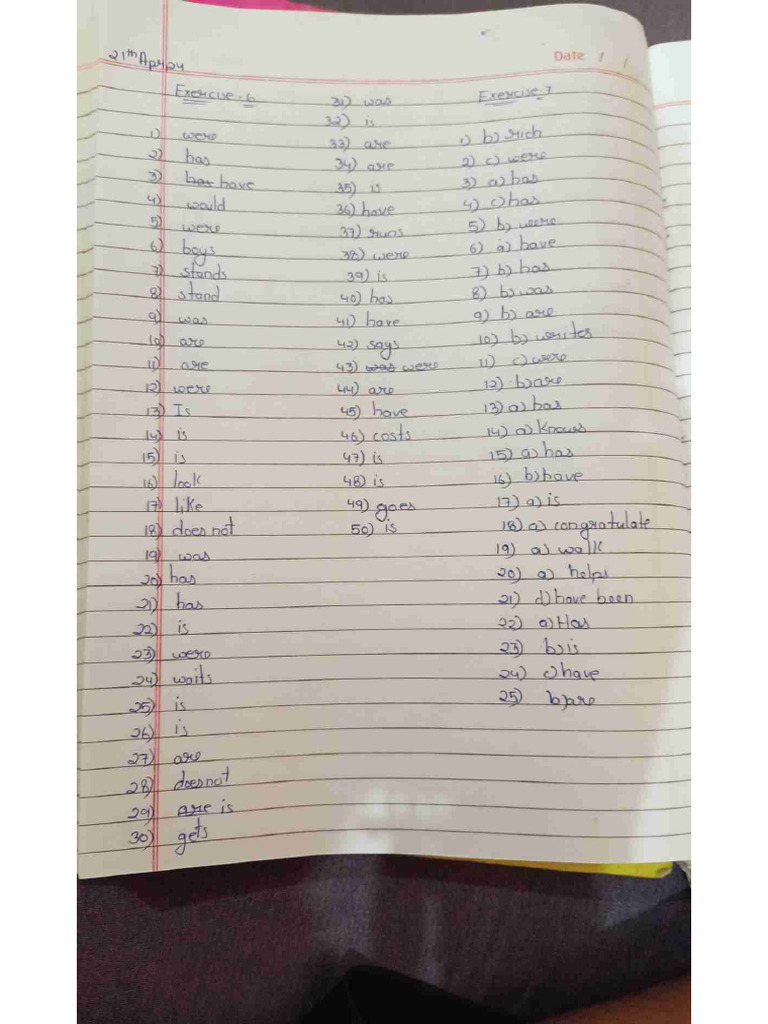 21th Apr,24
Date / /
Exercise-6
1) were
2) has
3) has have
4) would
5) were
6) boys
7) stands
8) stand
9) was
10) are
11) are
12) were
13) Is
14) is
15) is
16) look
17) like
18) does not
19) was
20) has
21) has
22) is
23) were
24) waits
25) is
26) is
27) are
28) does not
29) are is
30) gets
31) was
32) is
33) are
34) are
35) is
36) have
37) runs
38) were
39) is
40) has
41) have
42) says
43) was were
44) are
45) have
46) costs
47) is
48) is
49) goes
50) is
Exercise-7
1) b) rich
2) c) were
3) a) has
4) c) has
5) b) were
6) a) have
7) b) has
8) b) was
9) b) are
10) b) writes
11) c) were
12) b) are
13) a) has
14) a) knows
15) a) has
16) b) have
17) a) is
18) a) congratulate
19) a) walk
20) a) helps
21) d) have been
22) a) Has
23) b) is
24) c) have
25) b) are